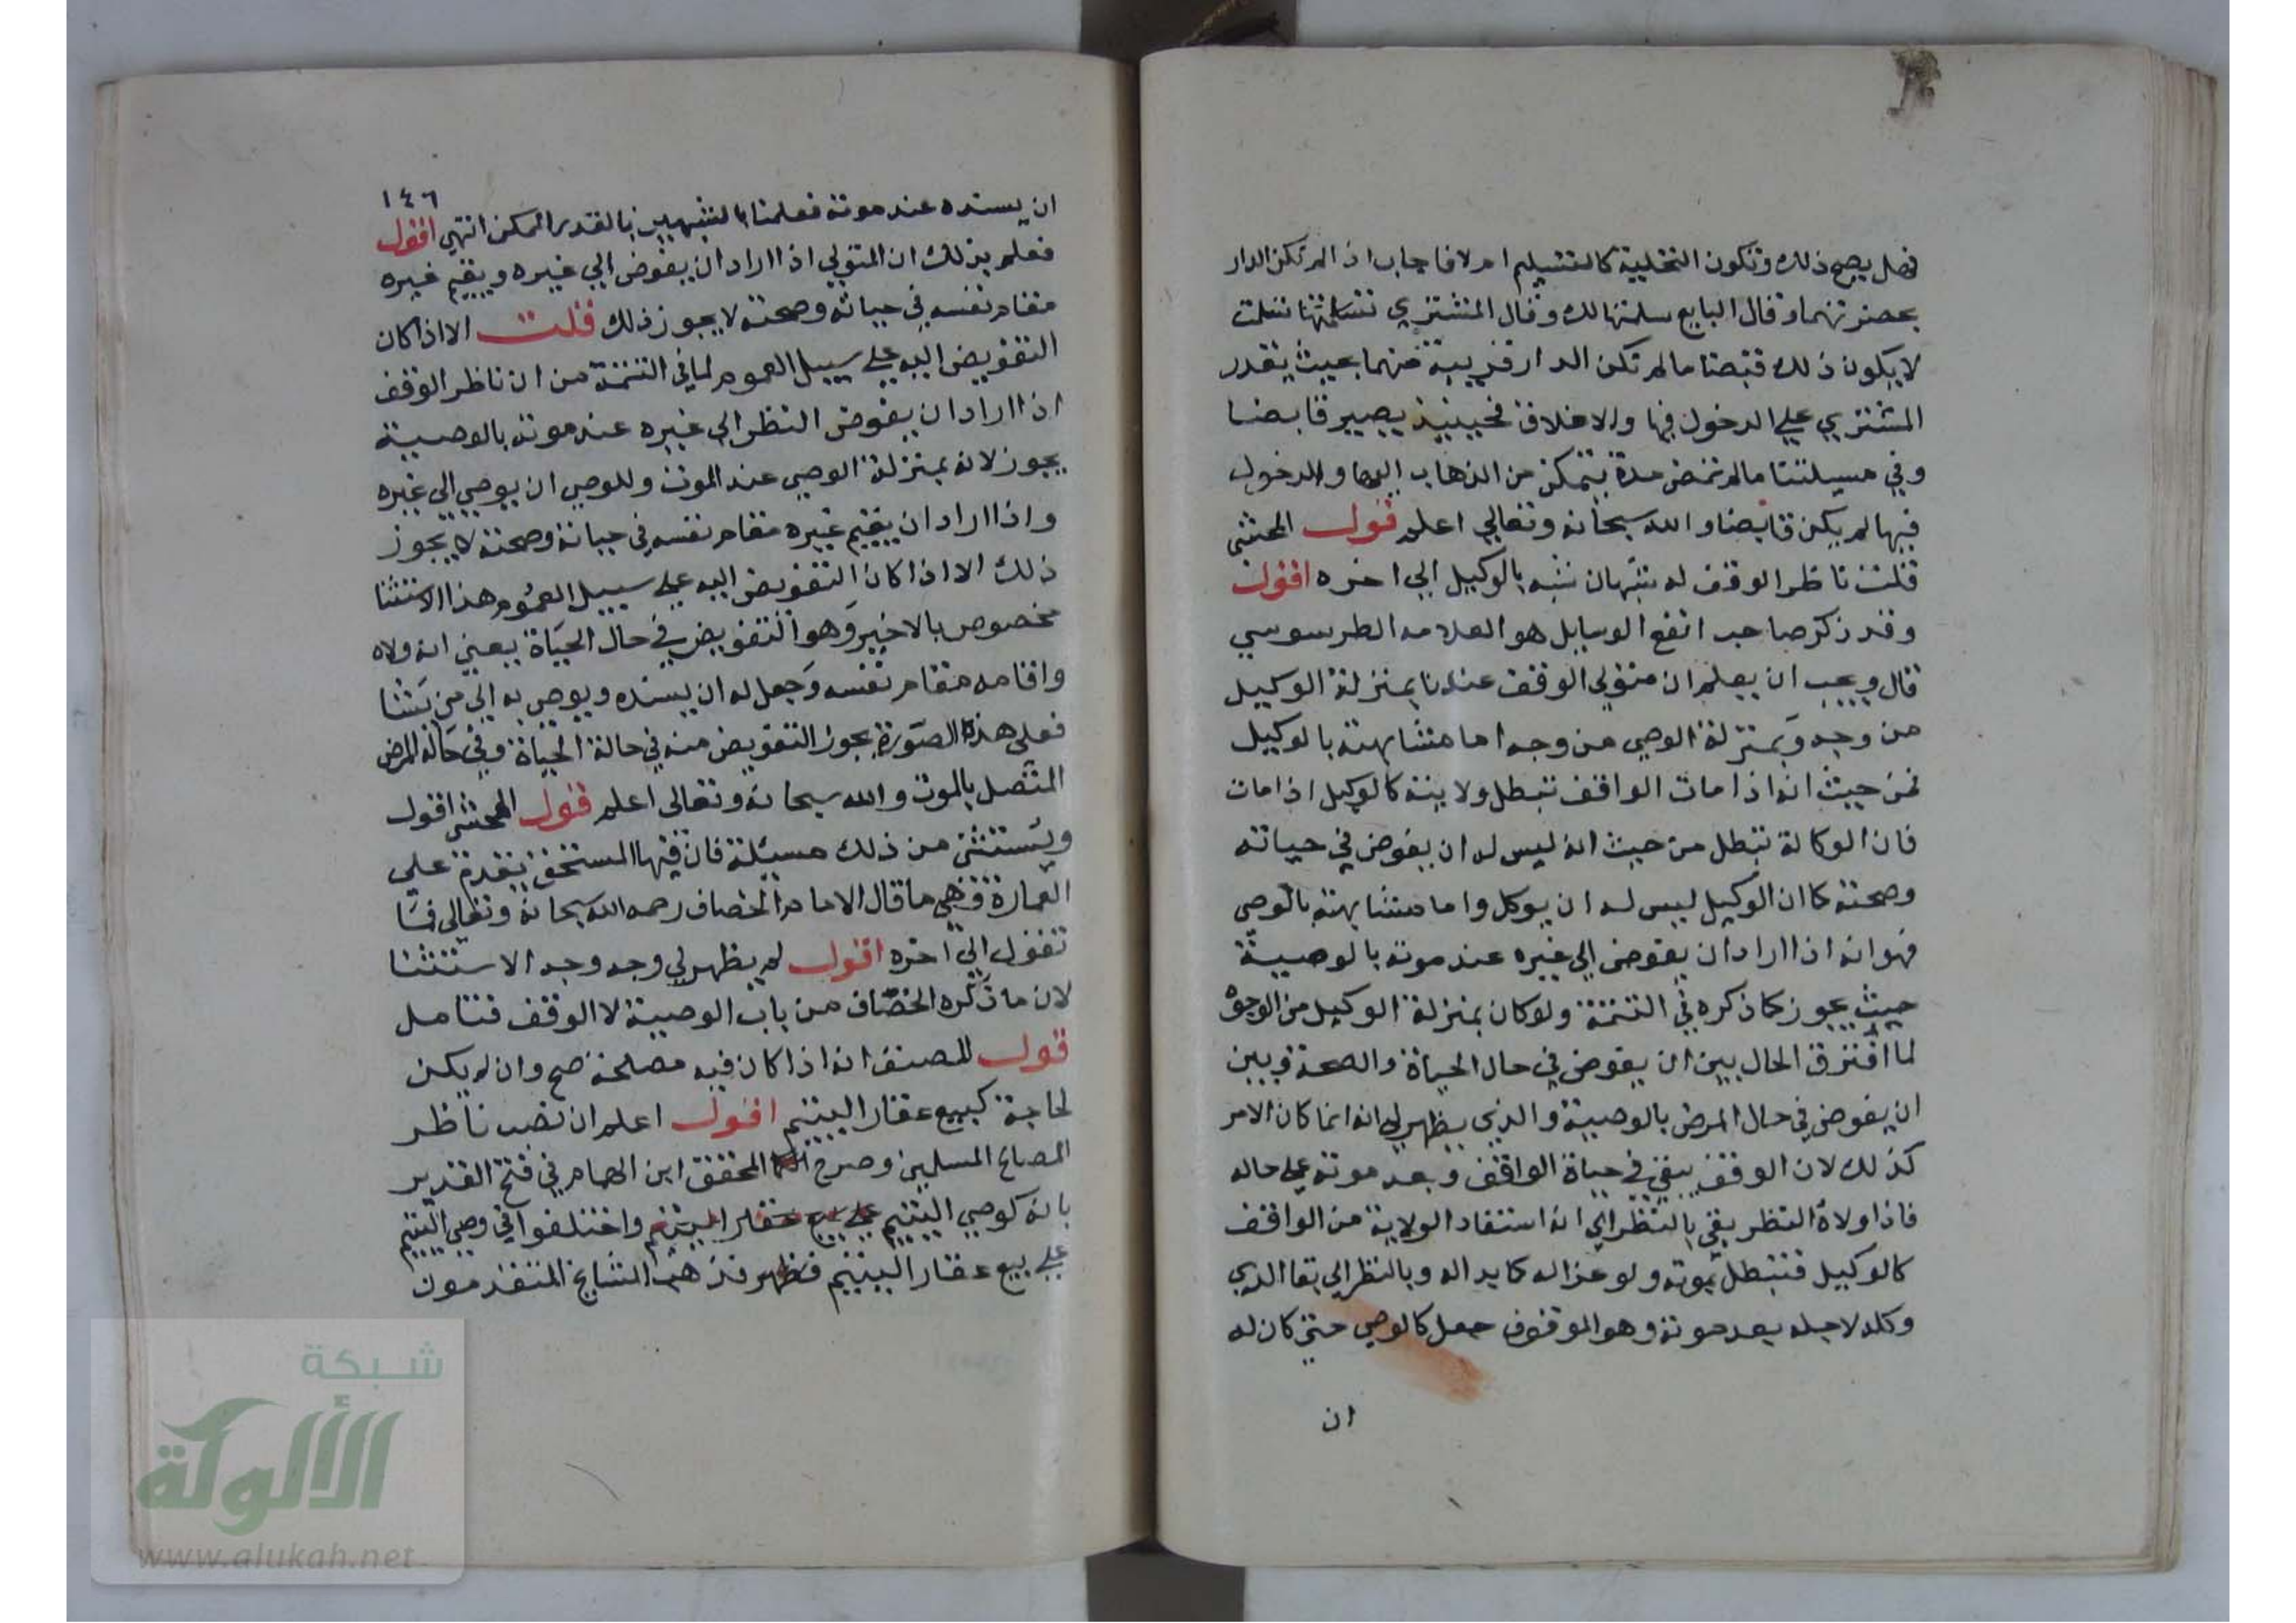 فهل يصح ذلك وتكون التخلية كالتسليم ام لا فاجاب اذا لم تكن الدار
بحضرتهما وقال البايع سلمتها لك وقال المشتري تسلمتها
لا يكون ذلك قبضا ما لم تكن الدار قريبة منهما بحيث يقدر
المشتري علي الدخول فيها والاغلاق فحينيذ يصير قابضا
وفي مسيلتنا ما لم تمض مدة يتمكن من الذهاب اليها والدخول
فيها لم يكن قابضا والله سبحانه وتعالي اعلم قول المحشي
قلت ناظر الوقف له شبهان شبه بالوكيل الي اخره اقول
وقد ذكر صاحب انفع الوسايل هو العلامه الطرسوسي
قال ويجب ان يعلم ان متولي الوقف عندنا بمنزلة الوكيل
من وجه وبمنزلة الوصي من وجه اما مشابهته بالوكيل
فمن حيث انه اذا مات الواقف تبطل ولايته كالوكيل اذا مات
فان الوكالة تبطل من حيث انه ليس له ان يفوض في حياته
وصحته كما ان الوكيل ليس له ان يوكل واما مشابهته بالوصي
فهو انه اذا اراد ان يفوض الي غيره عند موته بالوصية
حيث يجوز كما ذكره في التتمة ولو كان بمنزلة الوكيل من الوجوه
لما افترق الحال بين ان يفوض في حال الحياة والصحة وبين
ان يفوض في حال المرض بالوصية والذي يظهر لي انه انما كان الامر
كذلك لان الوقف يبقي في حياة الواقف وبعد موته علي حاله
فاذا ولاه النظر بقي بالنظر الي انه استفاد الولاية من الواقف
كالوكيل فتبطل بموته ولو عزاله كما بداله وبالنظر الي بقا الذي
وكله لاجله بعد موته وهو الموقوف جعل كالوصي حتي كان له
ان
١٤٦
ان يسنده عند موته فعلمنا بالشبهين بالقدر الممكن انتهي اقول
فعلم بذلك ان المتولي اذا اراد ان يفوض الي غيره ويقيم غيره
مقام نفسه في حياته وصحته لا يجوز ذلك قلت الا اذا كان
التفويض اليه علي سبيل العموم لما في التتمة من ان ناظر الوقف
اذا اراد ان يفوض النظر الي غيره عند موته بالوصية
يجوز لانه بمنزلة الوصي عند الموت وللوصي ان يوصي الي غيره
واذا اراد ان يقيم غيره مقام نفسه في حياته وصحته لا يجوز
ذلك الا اذا كان التفويض اليه علي سبيل العموم هذا الاستثنا
مخصوص بالاخير وهو التفويض في حال الحياة يعني انه ولاه
واقامه مقام نفسه وجعل له ان يسنده ويوصي به الي من يشا
فعلي هذه الصورة يجوز التفويض منه في حالة الحياة وفي حالة المرض
المتصل بالموت والله سبحانه وتعالي اعلم قول المحشي اقول
ويستثني من ذلك مسيلة فان فيها المستحق يقدم علي
العمارة وهي ما قال الامام الخصاف رحمه الله سبحانه وتعالي
تقول الي اخره اقول لم يظهر لي وجه وجه الاستثنا
لان ما ذكره الخصاف من باب الوصية لا الوقف فتامل
قول المصنف انه اذا كان فيه مصلحة صح وان لم يكن
لحاجة كبيع عقار اليتيم اقول اعلم ان نصب ناظر
المصالح المسلمين وصرح المحقق ابن الهمام في فتح القدير
بانه كوصي اليتيم علي بيع عقار اليتيم واختلفوا في وصي اليتيم
علي بيع عقار اليتيم فظهر فذهب المشايخ المتقدمون
شبكة
الألوكة
www.alukah.net